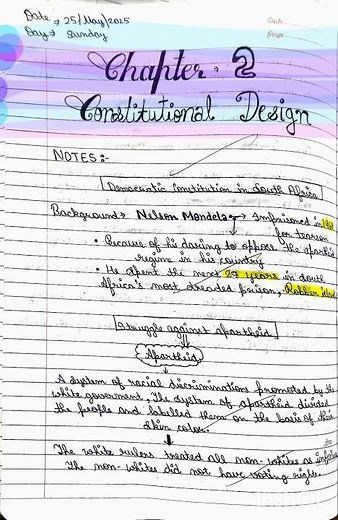 Date → 25/May/2025
Day → Sunday
Date
Page
Chapter - 2
Constitutional Design
NOTES:-
Democratic Constitution in South Africa
Background → Nelson Mandela → Imprisoned in
for treason
• Because of his daring to oppose the apartheid
regime in his country
• He spent the next 27 years in South
Africa's most dreaded prison, Robben Island
Struggle against apartheid
Apartheid
A system of racial discriminations promoted by the
white goverment. The system of apartheid divided
the people and labelled them on the basis of their
skin color.
The white rulers treated all non-whites as inferior
The non-whites did not have voting rights.